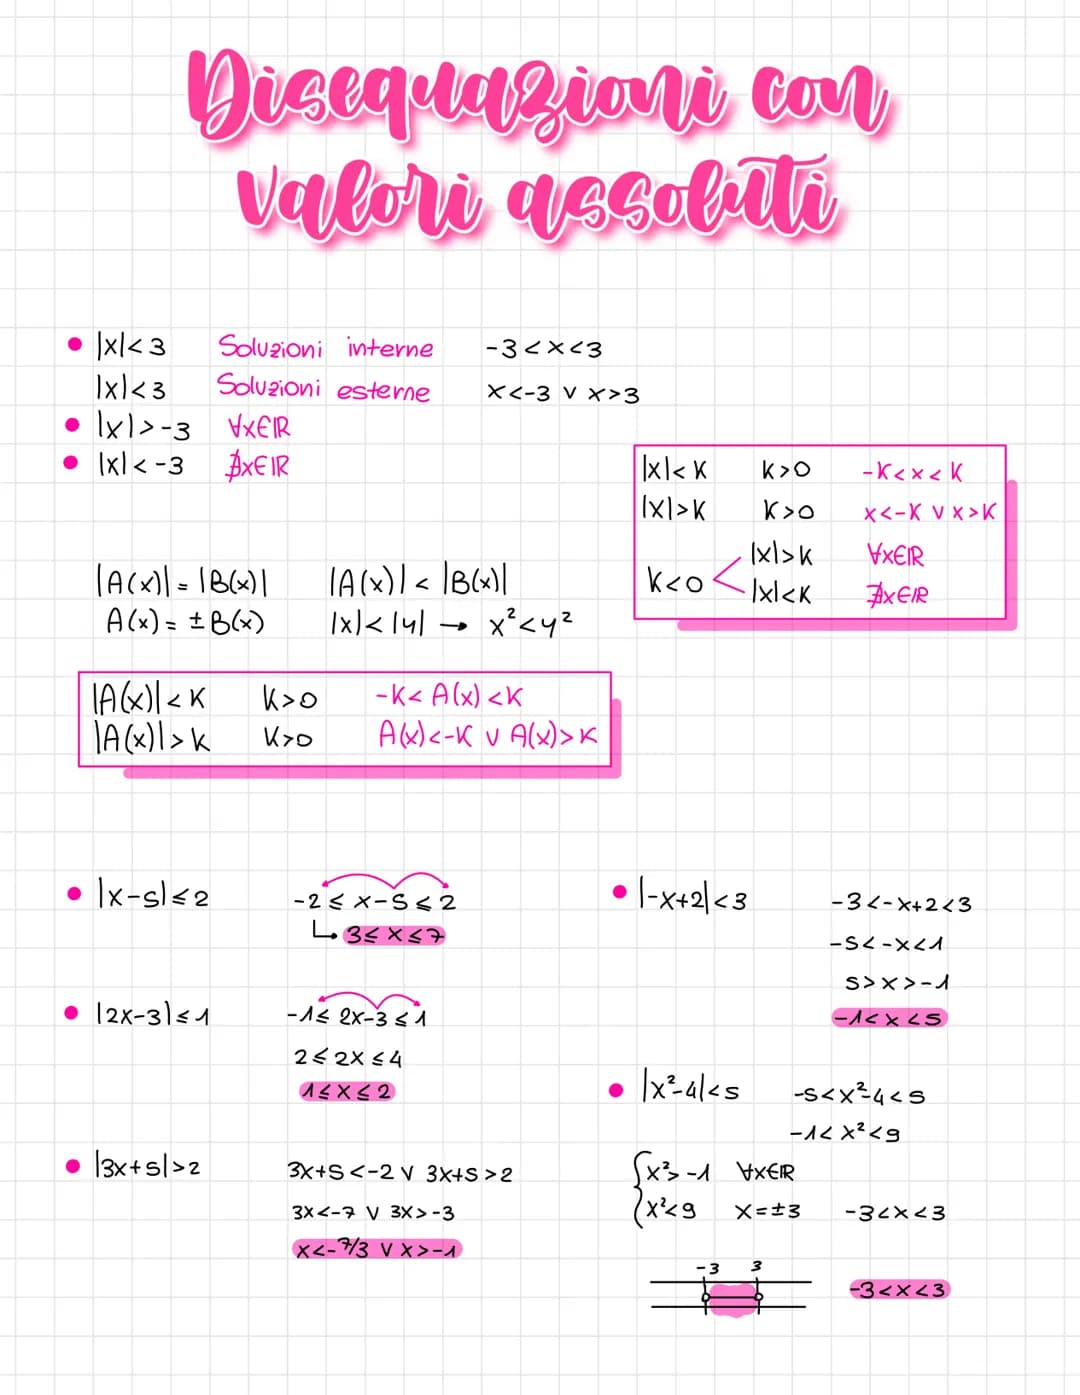 Disequazioni con
valori assoluti
• |x|<3 Soluzioni interne -3<x<3
|x|<3 Soluzioni esterne x<-3 ∨ x>3
• |x|>-3 ∀x∈ℝ
• |x|<-3 ∄x∈ℝ
|x|<K K>0 -K<x<K
|x|>K K>0 x<-K ∨ x>K
K<0 |x|>K ∀x∈ℝ
|x|<K ∄x∈ℝ
|A(x)| = |B(x)| |A(x)| < |B(x)|
A(x) = ±B(x) |x|<|y| → x²<y²
|A(x)|<K K>0 -K< A(x) <K
|A(x)|>K K>0 A(x)<-K ∨ A(x)>K
• |x-5|≤2 -2 ≤ x-5 ≤ 2
↳ 3≤ x ≤7
• |2x-3|≤1 -1≤ 2x-3 ≤1
2≤ 2x ≤4
1≤x≤2
• |3x+5|>2 3x+5<-2 ∨ 3x+5>2
3x<-7 ∨ 3x>-3
x<-7/3 ∨ x>-1
• |-x+2|<3 -3<-x+2<3
-5<-x<1
5>x>-1
-1<x<5
• |x²-4|<5 -5<x²-4<5
-1< x²<9
{x²>-1 ∀x∈ℝ
x²<9 x=±3 -3<x<3
-3 3
-3<x<3